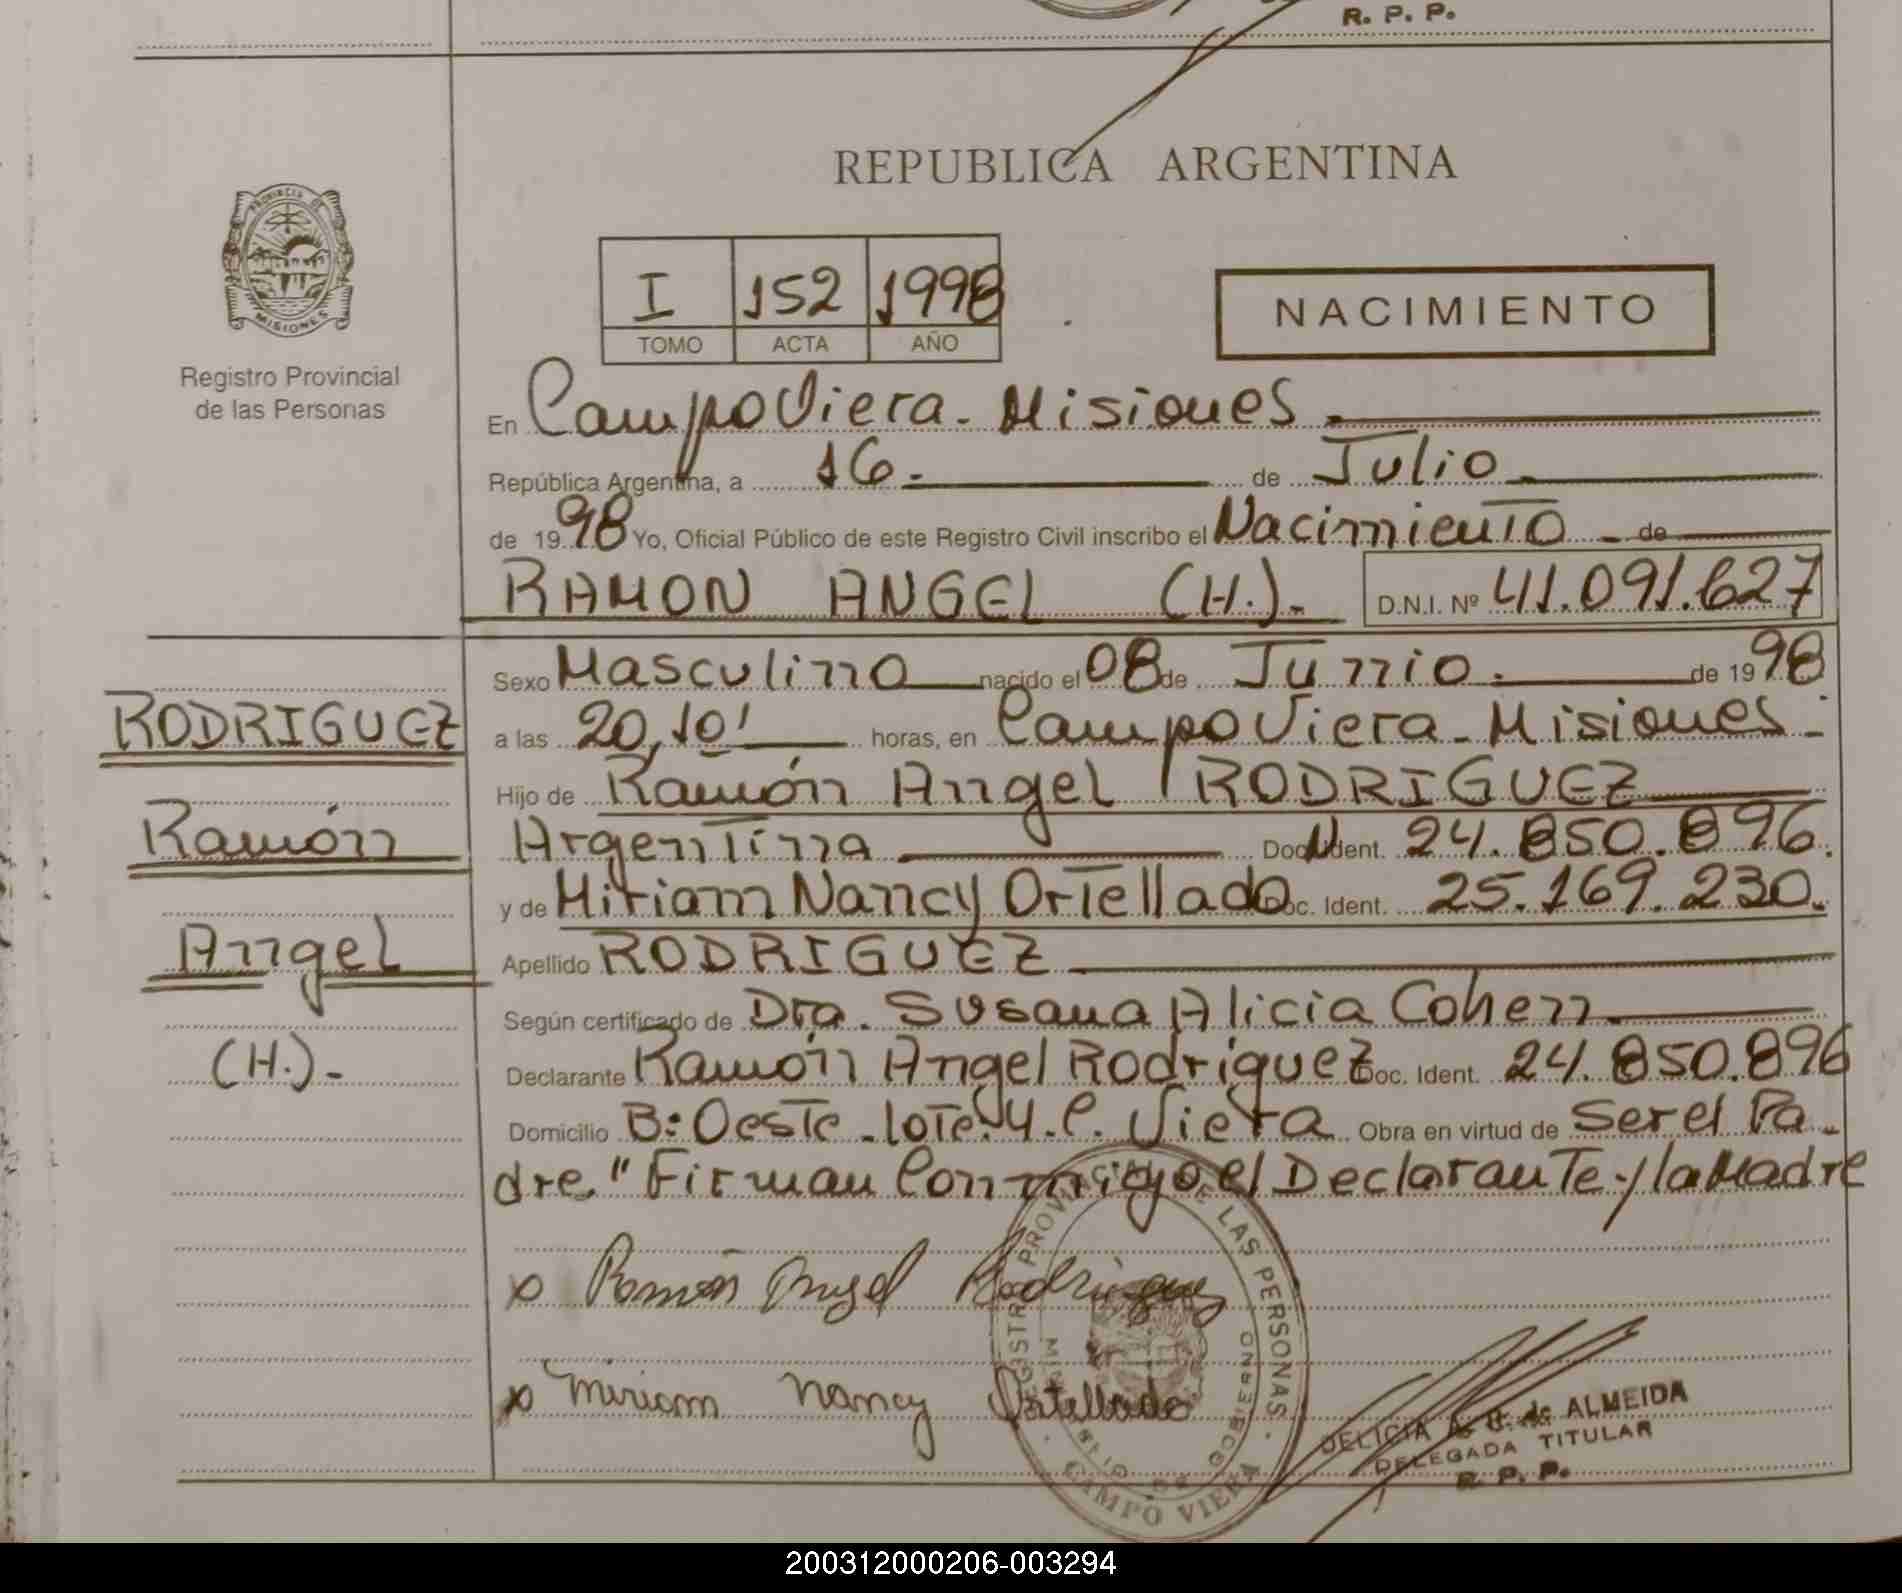 R. P. P.
REPUBLICA ARGENTINA
PROVINCIA DE
MISIONES
Registro Provincial
de las Personas
I 152 1998
TOMO ACTA AÑO
NACIMIENTO
En Campo Viera - Misiones.
República Argentina, a 16. de Julio
de 1998 Yo, Oficial Público de este Registro Civil inscribo el Nacimiento - de
RAMON ANGEL (H.)- D.N.I. Nº 41.091.627
Sexo Masculino nacido el 08 de Junio. de 1998
RODRIGUEZ
a las 20,10' horas, en Campo Viera - Misiones-
Hijo de Ramón Angel RODRIGUEZ
Ramón
Argentina Doc. Ident. 24.850.896.
y de Miriam Nancy Ortellado Doc. Ident. 25.169.230.
Angel
Apellido RODRIGUEZ
Según certificado de Dra. Susana Alicia Cohen
(H.)-
Declarante Ramón Angel Rodriguez Doc. Ident. 24.850.896
Domicilio B: Oeste - lote: 4. C. Viera Obra en virtud de Ser el Pa-
dre." Firman Conmigo el Declarante y la Madre
x Ramón Angel Rodriguez
x Miriam Nancy Ortellado
REGISTRO PROVINCIAL DE LAS PERSONAS
CAMPO VIERA
DELICIA de ALMEIDA
DELEGADA TITULAR
R. P. P.
200312000206-003294